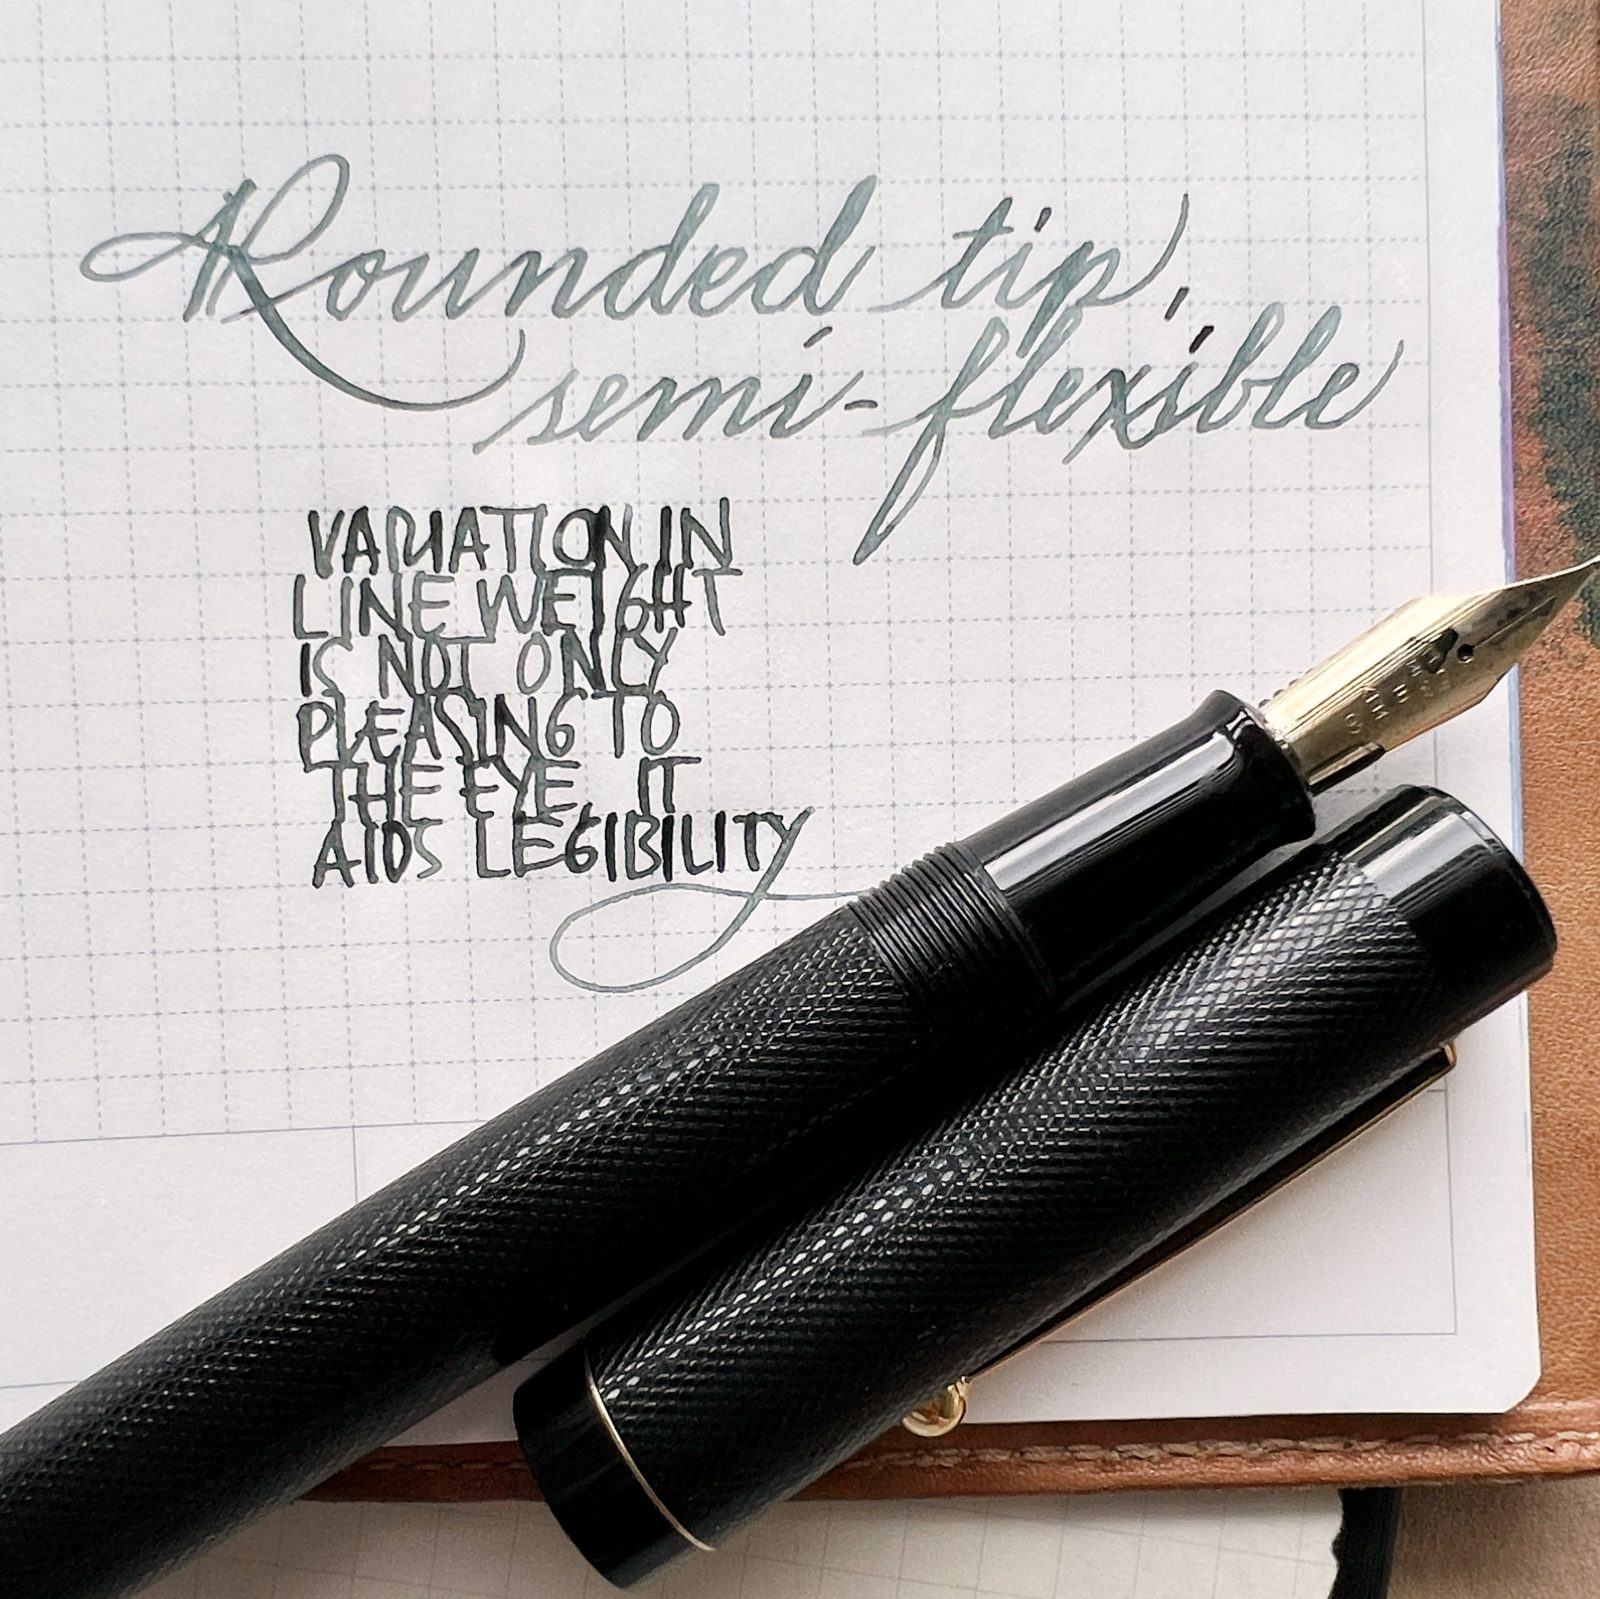 Rounded tip,
semi-flexible
VARIATION IN
LINE WEIGHT
IS NOT ONLY
PLEASING TO
THE EYE, IT
AIDS LEGIBILITY